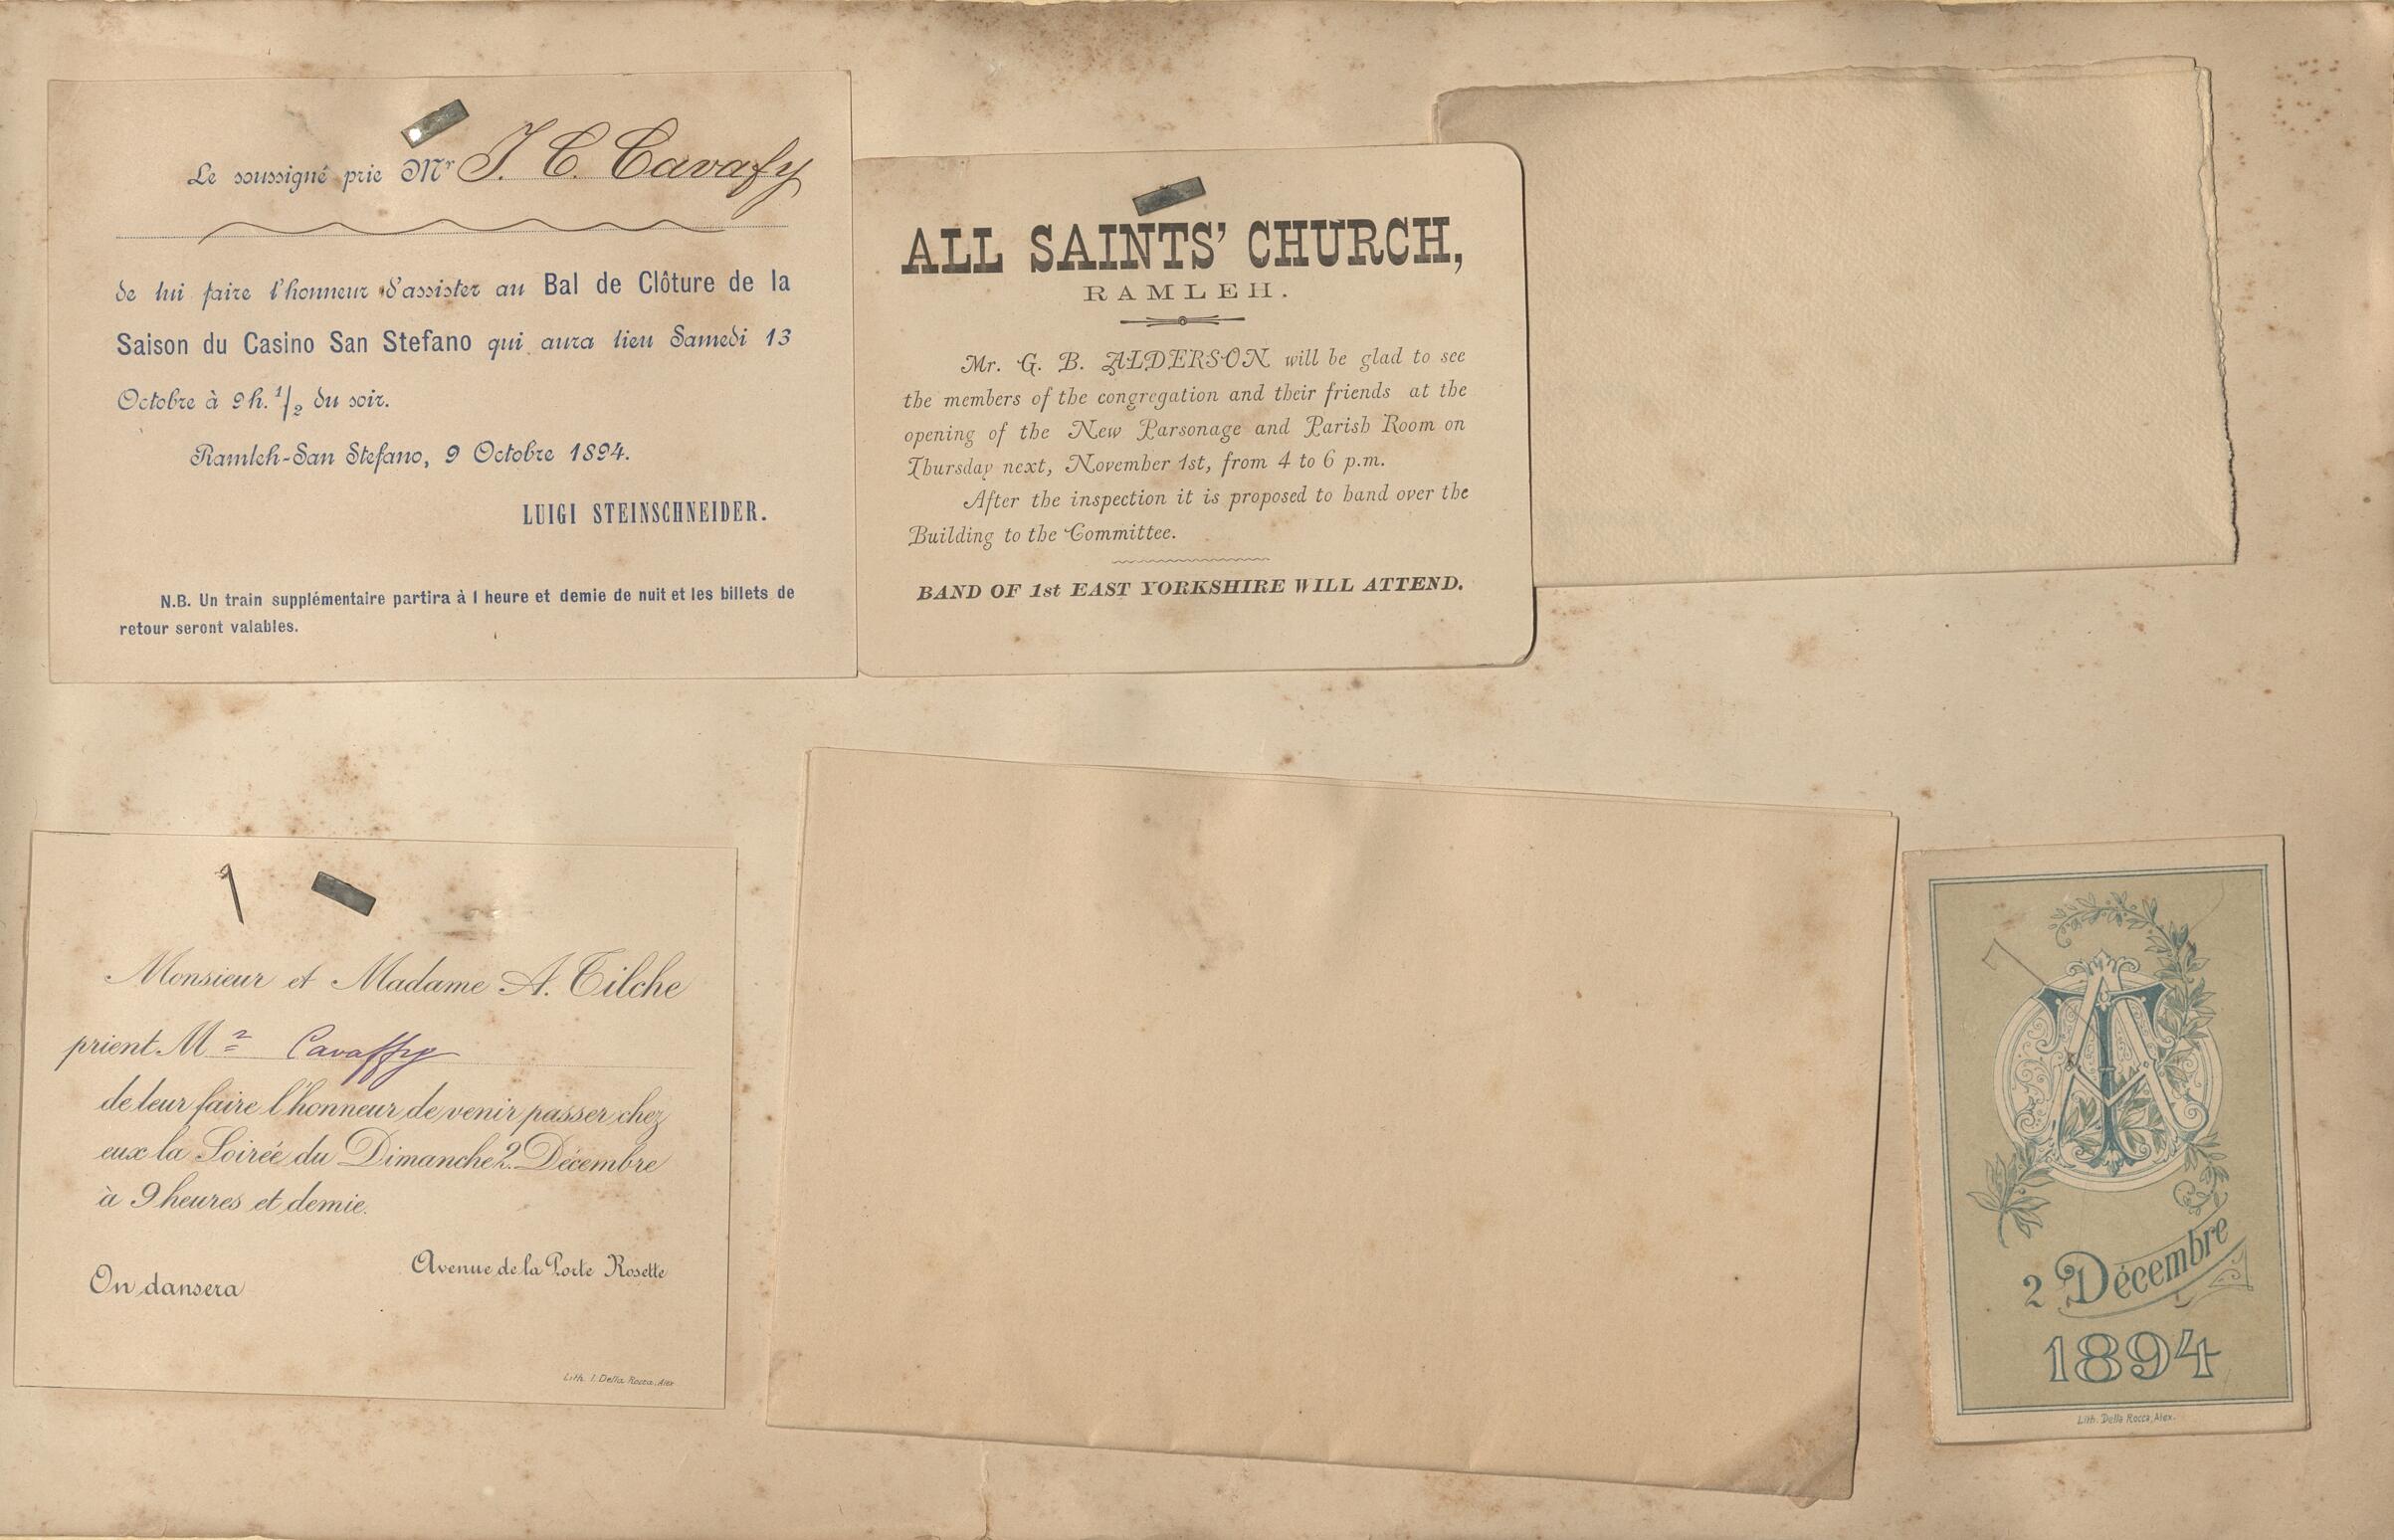 Le soussigné prie Mr J. C. Cavafy
de lui faire l'honneur d'assister au Bal de Clôture de la
Saison du Casino San Stefano qui aura lieu Samedi 13
Octobre à 9 h. 1/2 du soir.
Ramleh-San Stefano, 9 Octobre 1894.
LUIGI STEINSCHNEIDER.
N.B. Un train supplémentaire partira à 1 heure et demie de nuit et les billets de
retour seront valables.
ALL SAINTS' CHURCH,
RAMLEH.
Mr. G. B. ALDERSON will be glad to see
the members of the congregation and their friends at the
opening of the New Parsonage and Parish Room on
Thursday next, November 1st, from 4 to 6 p.m.
After the inspection it is proposed to hand over the
Building to the Committee.
BAND OF 1st EAST YORKSHIRE WILL ATTEND.
Monsieur et Madame A. Tilche
prient Mr Cavaffy
de leur faire l'honneur de venir passer chez
eux la Soirée du Dimanche 2 Décembre
à 9 heures et demie.
Avenue de la Porte Rosette
On dansera
Lith. I. Della Rocca, Alex
AT
2 Décembre
1894
Lith. Della Rocca, Alex.